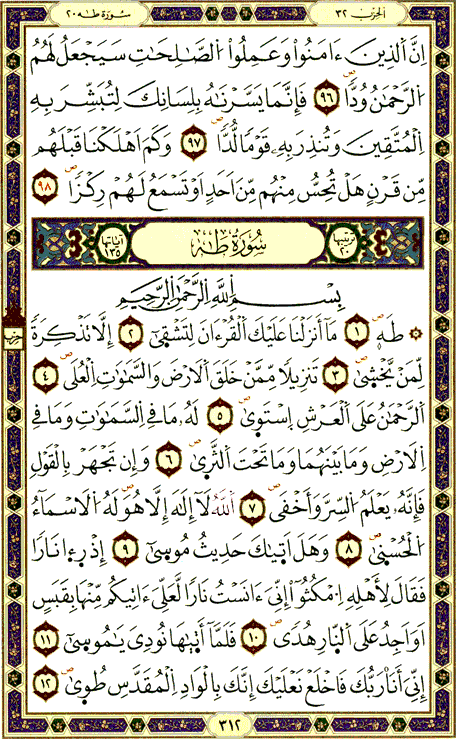 الحزب ٣٢
سورة طه ٢٠
إِنَّ اَلذِينَ ءَامَنُواْ وَعَمِلُواْ اُلصَّٰلِحَٰتِ سَيَجْعَلُ لَهُمُ
اُلرَّحْمَٰنُ وُدّٗا ٩٦ فَإِنَّمَا يَسَّرْنَٰهُ بِلِسَانِكَ لِتُبَشِّرَ بِهِ
اِلْمُتَّقِينَ وَتُنذِرَ بِهِۦ قَوْمٗا لُّدّٗا ٩٧ وَكَمَ اَهْلَكْنَا قَبْلَهُم
مِّن قَرْنٍ هَلْ تُحِسُّ مِنْهُم مِّنَ اَحَدٍ اَوْ تَسْمَعُ لَهُمْ رِكْزَا ٩٨
ترتيبها ٢٠ سُورَةُ طَهَ آياتها ١٣٥
بِسْمِ اِللَّهِ اِلرَّحْمَٰنِ اِلرَّحِيمِ
طَهَ ١ مَا أَنزَلْنَا عَلَيْكَ اَلْقُرْءَانَ لِتَشْقَىٰ ٢ إِلَّا تَذْكِرَةٗ
لِّمَنْ يَّخْشَىٰ ٣ تَنزِيلٗا مِّمَّنْ خَلَقَ اَلَارْضَ وَالسَّمَٰوَٰتِ اِلْعُلَى ٤
اَلرَّحْمَٰنُ عَلَى اَلْعَرْشِ اِسْتَوَىٰ ٥ لَهُۥ مَا فِي اِلسَّمَٰوَٰتِ وَمَا فِي
اِلَارْضِ وَمَا بَيْنَهُمَا وَمَا تَحْتَ اَلثَّرَىٰ ٦ وَإِن تَجْهَرْ بِالْقَوْلِ
فَإِنَّهُۥ يَعْلَمُ اُلسِّرَّ وَأَخْفَى ٧ اَللَّهُ لَا إِلَٰهَ إِلَّا هُوَ لَهُ اُلَاسْمَآءُ
اُلْحُسْنَىٰ ٨ وَهَلَ اَتَىٰكَ حَدِيثُ مُوسَىٰ ٩ إِذْ رَءِا نَارٗا
فَقَالَ لِأَهْلِهِ اِمْكُثُواْ إِنِّيَ ءَانَسْتُ نَارٗا لَّعَلِّيَ ءَاتِيكُم مِّنْهَا بِقَبَسٍ
اَوَ اَجِدُ عَلَى اَلنَّارِ هُدٗى ١٠ فَلَمَّا أَتَىٰهَا نُودِيَ يَٰمُوسَىٰ ١١
إِنِّيَ أَنَا رَبُّكَ فَاخْلَعْ نَعْلَيْكَ إِنَّكَ بِالْوَادِ اِلْمُقَدَّسِ طُوَىٰ ١٢
٣١٢